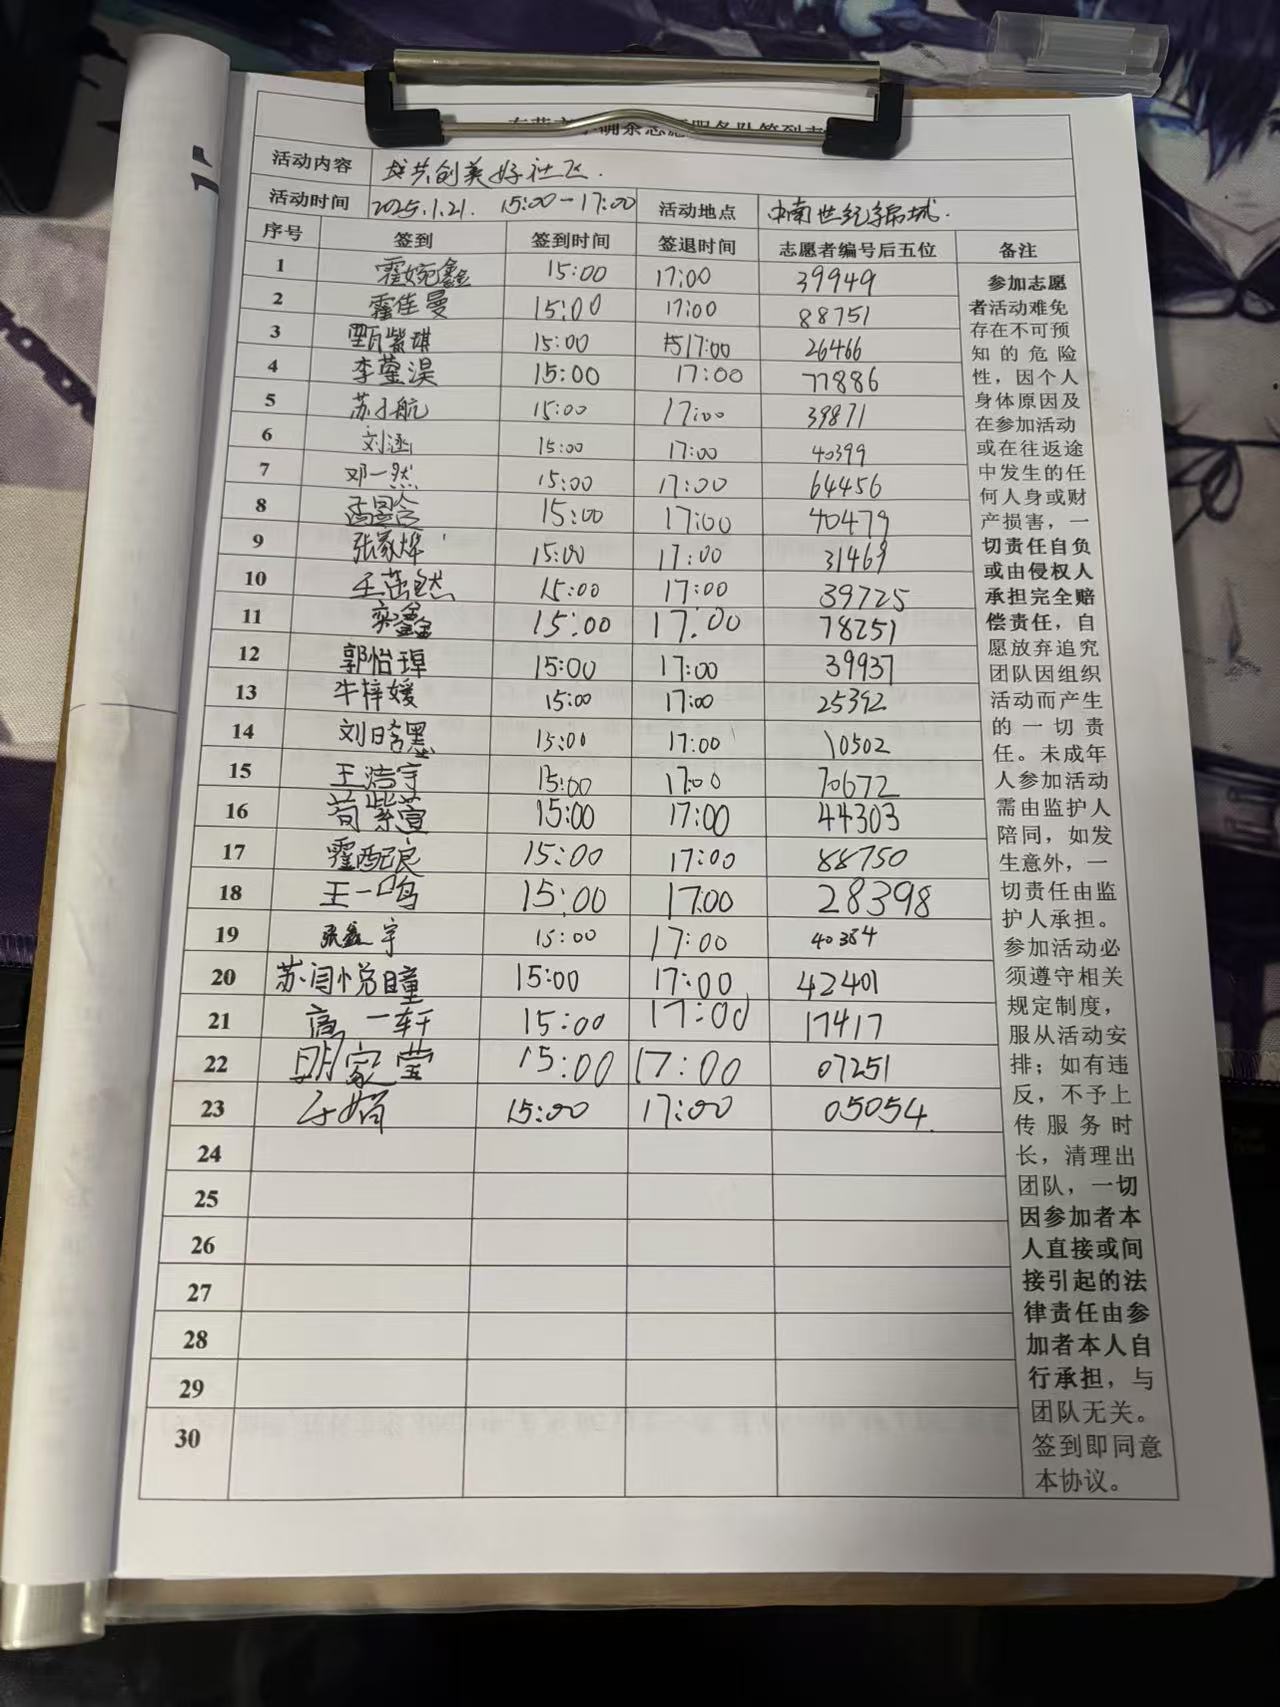 服务队签到表
活动内容 共创美好社区.
活动时间 2025.1.21. 15:00-17:00 活动地点 中南世纪锦城.
序号 签到 签到时间 签退时间 志愿者编号后五位 备注
1 霍婉鑫 15:00 17:00 39949
2 霍佳曼 15:00 17:00 88751
3 甄紫琪 15:00 17:00 26466
4 李蓥淏 15:00 17:00 77886
5 苏子航 15:00 17:00 39871
6 刘涵 15:00 17:00 40399
7 邓一然 15:00 17:00 64456
8 15:00 17:00 40479
9 张家烨 15:00 17:00 31469
10 王茁然 15:00 17:00 39725
11 栾鑫 15:00 17:00 78251
12 郭怡琸 15:00 17:00 39937
13 牛梓媛 15:00 17:00 25392
14 刘晗 15:00 17:00 10502
15 王浩宇 15:00 17:00 70672
16 苟紫萱 15:00 17:00 44303
17 霍配辰 15:00 17:00 88750
18 王一鸣 15:00 17:00 28398
19 张鑫宇 15:00 17:00 40384
20 苏闫悦瞳 15:00 17:00 42401
21 高一轩 15:00 17:00 17417
22 明家莹 15:00 17:00 07251
23 于娟 15:00 17:00 05054.
24
25
26
27
28
29
30
参加志愿
者活动难免
存在不可预
知的危险
性，因个人
身体原因及
在参加活动
或在往返途
中发生的任
何人身或财
产损害，一
切责任自负
或由侵权人
承担完全赔
偿责任，自
愿放弃追究
团队因组织
活动而产生
的一切责
任。未成年
人参加活动
需由监护人
陪同，如发
生意外，一
切责任由监
护人承担。
参加活动必
须遵守相关
规定制度，
服从活动安
排；如有违
反，不予上
传服务时
长，清理出
团队，一切
因参加者本
人直接或间
接引起的法
律责任由参
加者本人自
行承担，与
团队无关。
签到即同意
本协议。